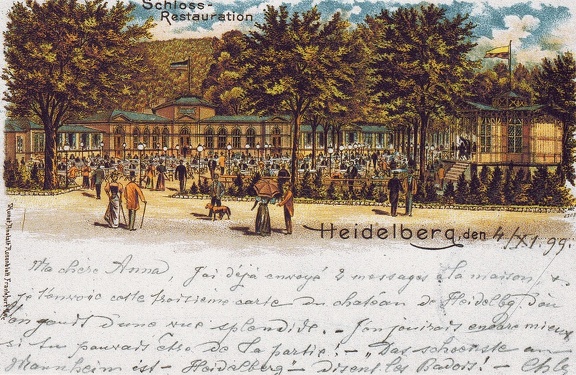 Schloss-
Restauration
Heidelberg, den 4/XI. 99.
Ma chère Anna, J'ai déjà envoyé 2 messages à la maison, &
je t'envoie cette troisième carte du chateau de Heidelbg. d'où
l'on jouit d'une vue splendide. - J'en jouirais encore mieux
si tu pouvais être de la partie. - "Das scheenste an
Mannheim ist - Heidelberg" - disent les Badois! -